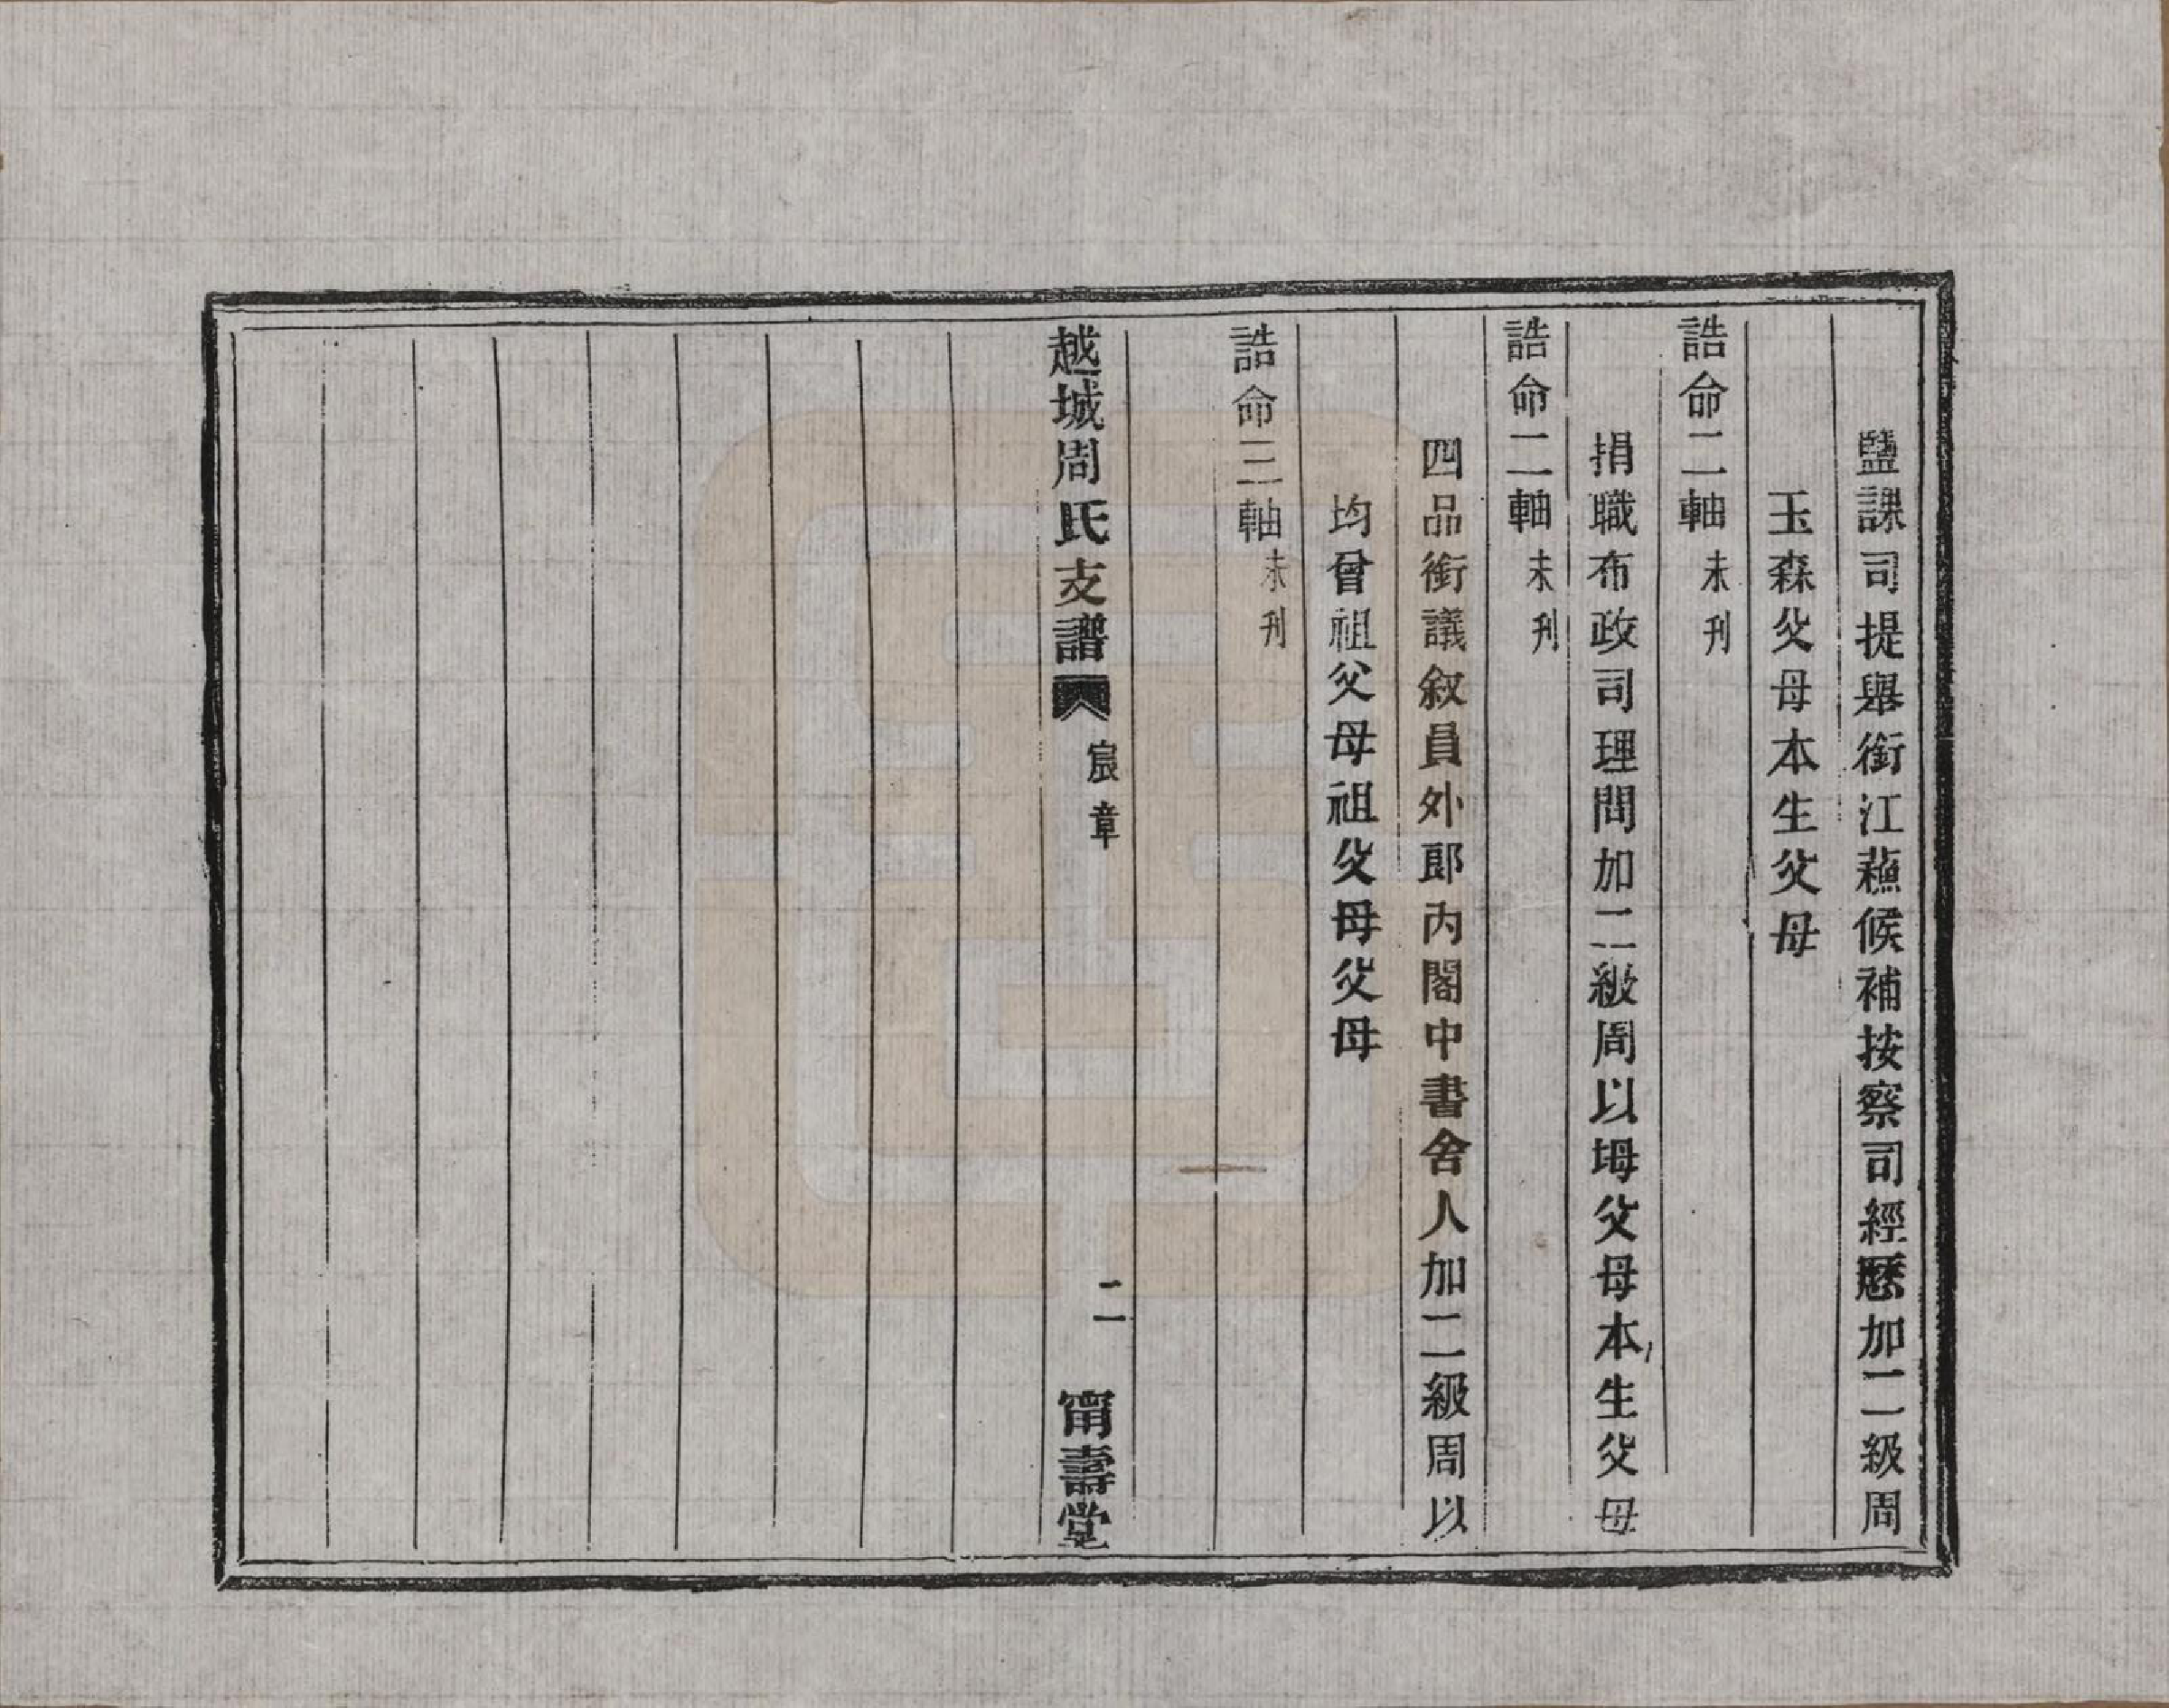 鹽課司提舉銜江蘓候補按察司經歷加二級周
玉森父母本生父母
誥命二軸未刊
捐職布政司理問加二級周以坶父母本生父母
誥命二軸未刊
四品銜議叙員外郎內閣中書舍人加二級周以
均曾祖父母祖父母父母
誥命三軸未刊
越城周氏支譜 宸章 二 甯壽堂